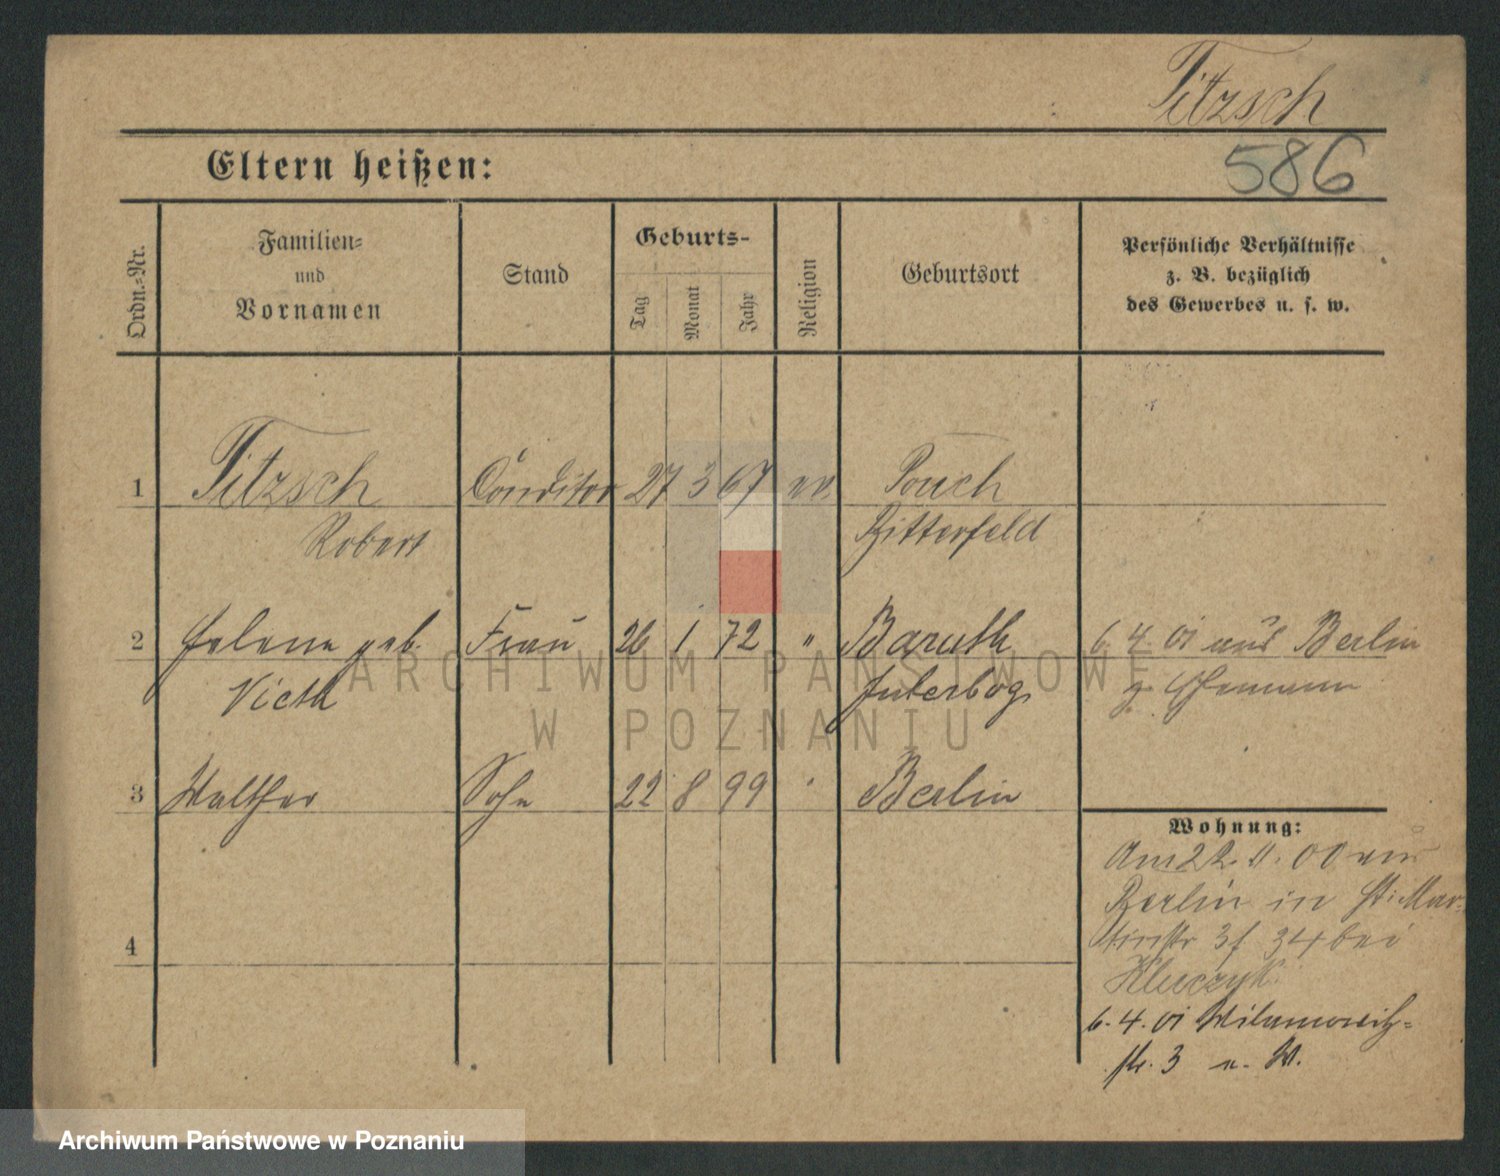 Titzsch
586
Eltern heißen:
Ordn.-Nr.
Familien-
und
Vornamen
Stand
Geburts-
Tag
Monat
Jahr
Religion
Geburtsort
Persönliche Verhältnisse
z. B. bezüglich
des Gewerbes u. s. w.
1 Titzsch Conditor 27 3 67 ev. Pouch
Robert Bitterfeld
2 Helene geb. Frau 26 1 72 " Baruth 6. 4. 01 aus Berlin
Vieth Juterbog z. Ehemann
3 Walther Sohn 22 8 99 " Berlin
Wohnung:
Am 22. 11. 00 aus
Berlin in St: Mar-
tinstr 34 bei
Kluczyk
6. 4. 01 Wilamowitz-
str. 3 n. W.
4
ARCHIWUM PAŃSTWOWE
W POZNANIU
Archiwum Państwowe w Poznaniu